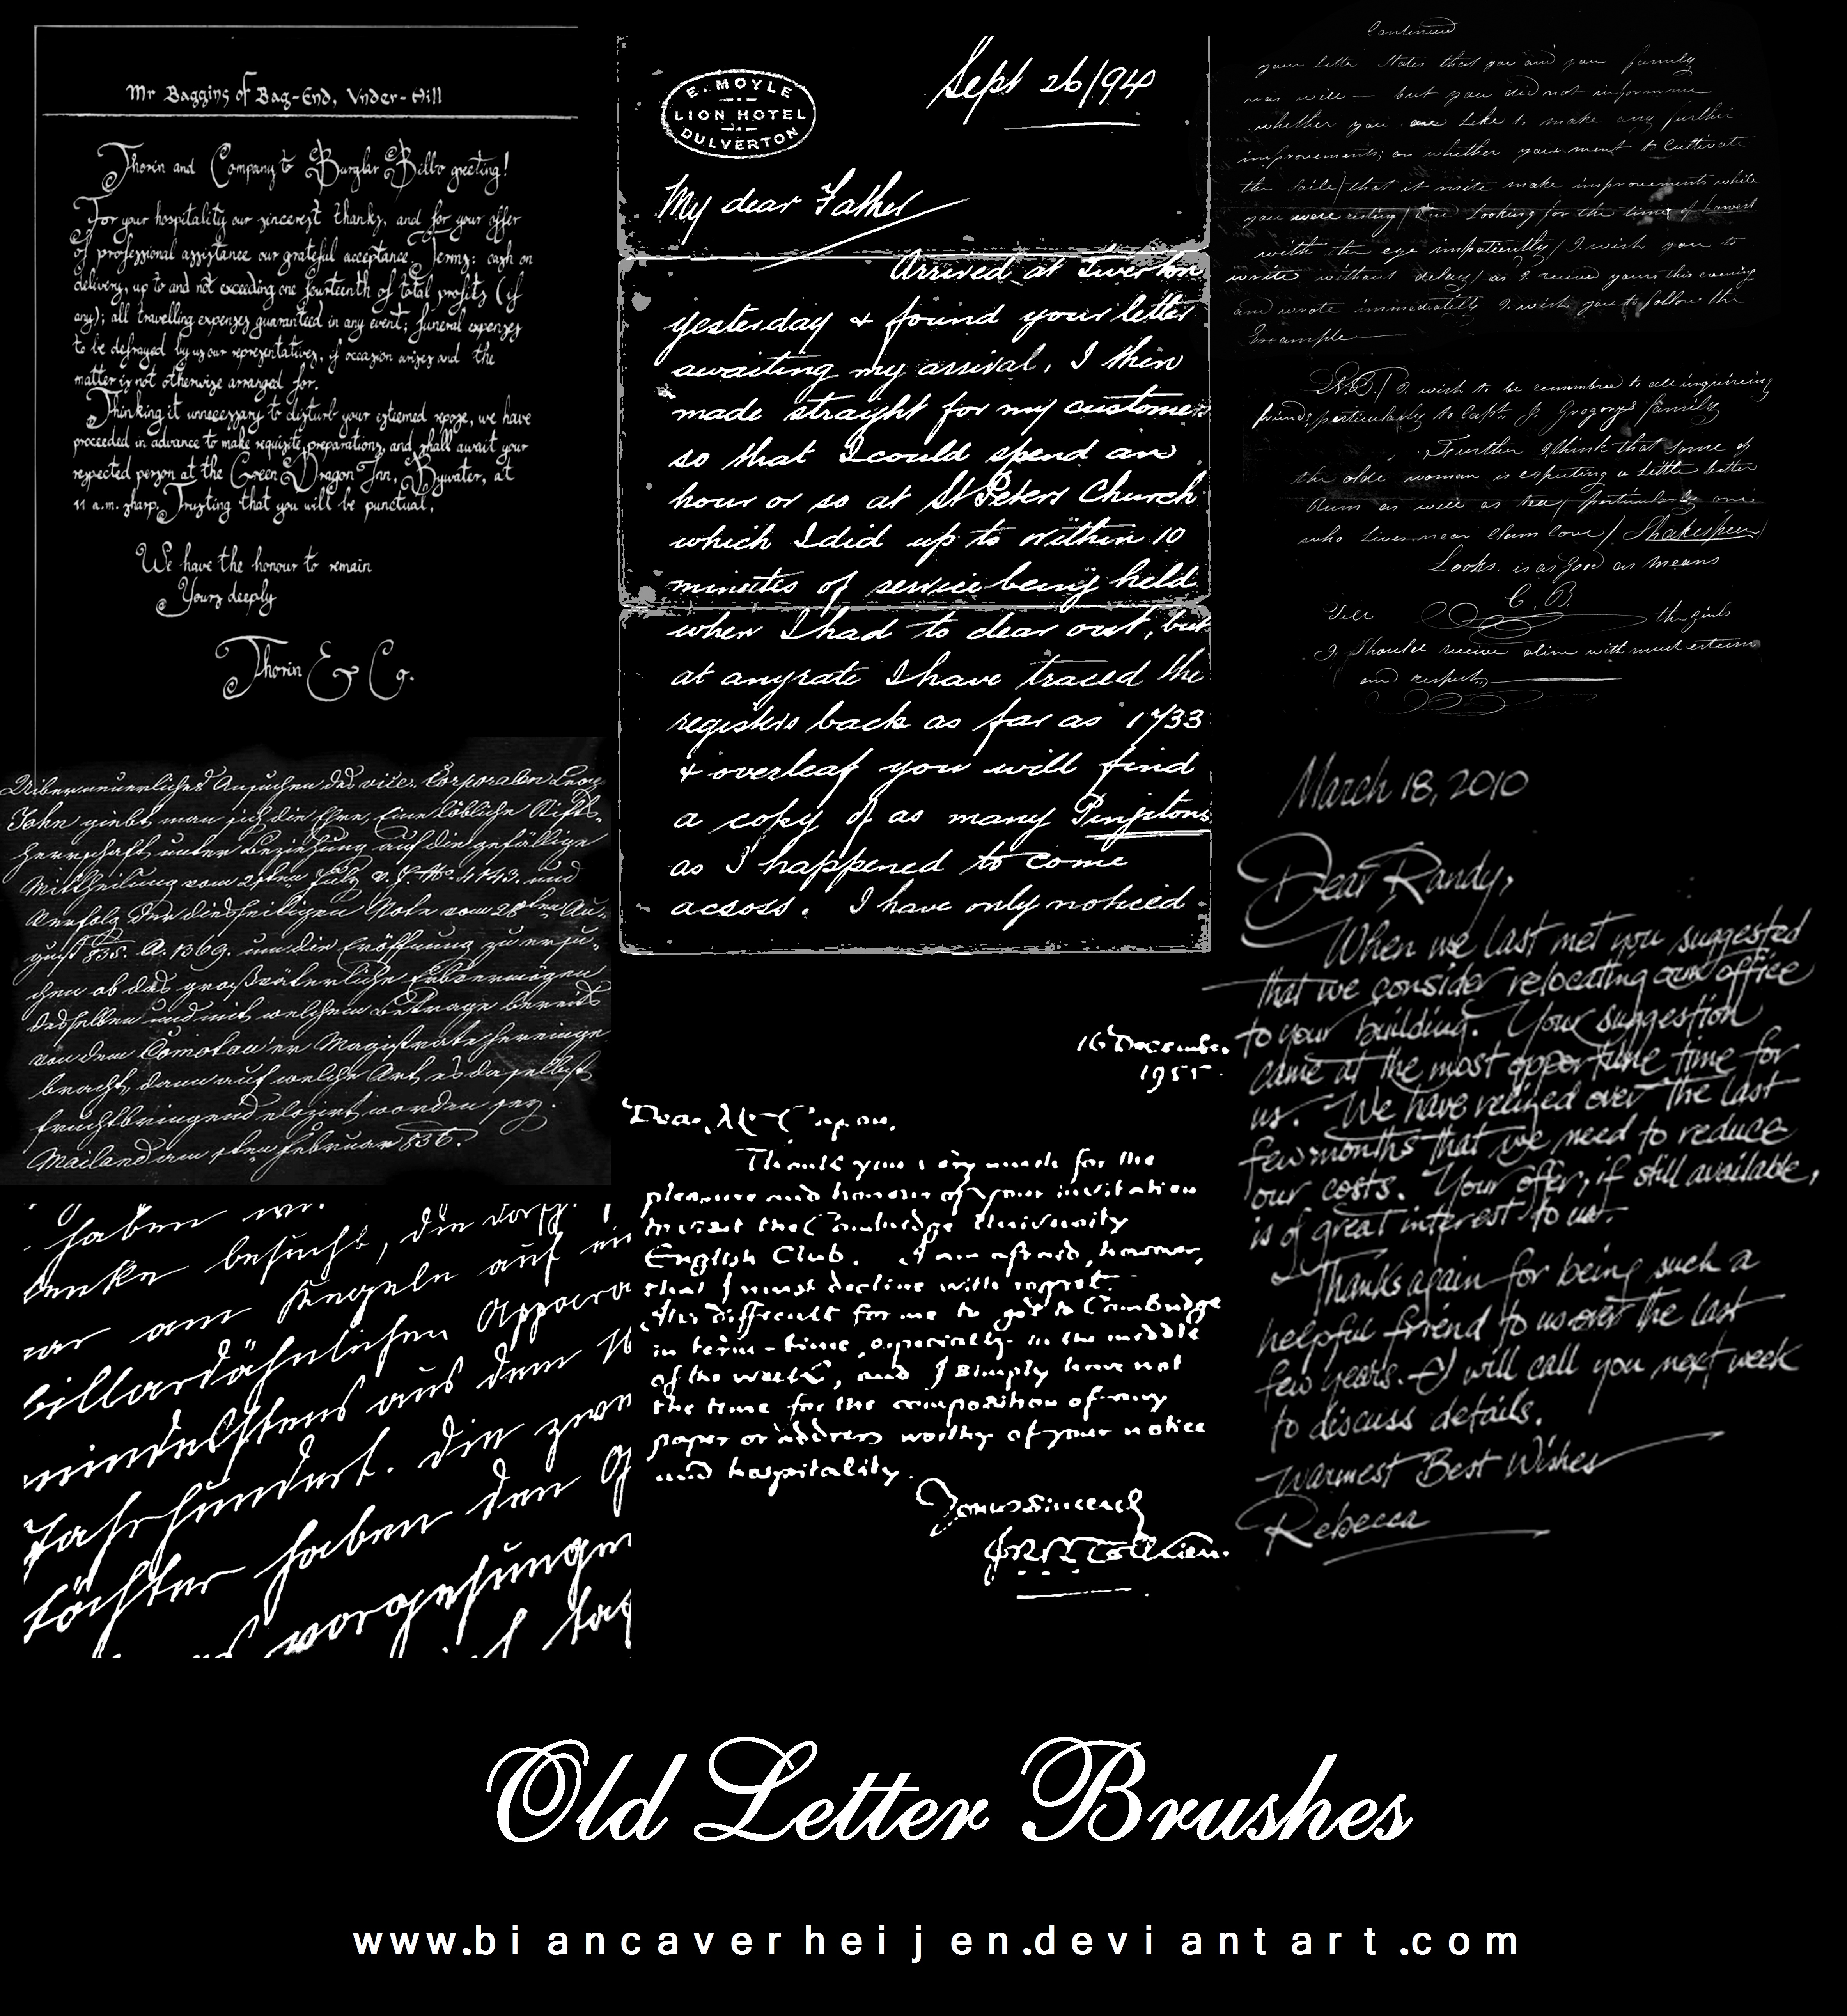 Mr Baggins of Bag-End, Vnder-Hill
Thorin and Company to Burglar Bilbo greeting!
For your hospitality our sincerest thanks, and for your offer
of professional assistance our grateful acceptance. Terms: cash on
delivery, up to and not exceeding one fourteenth of total profits (if
any); all travelling expenses guaranteed in any event; funeral expenses
to be defrayed by us or our representatives, if occasion arises and the
matter is not otherwise arranged for.
Thinking it unnecessary to disturb your esteemed repose, we have
proceeded in advance to make requisite preparations, and shall await your
respected person at the Green Dragon Inn, Bywater, at
11 a.m. sharp. Trusting that you will be punctual,
We have the honour to remain
Yours deeply
Thorin & Co.
E. MOYLE
LION HOTEL
DULVERTON
Sept 26/94
My dear Father
Arrived at Tiverton
yesterday & found your letter
awaiting my arrival, I then
made straight for my customers
so that I could spend an
hour or so at St Peters Church
which I did up to within 10
minutes of service being held
when I had to clear out, but
at anyrate I have traced the
registers back as far as 1733
& overleaf you will find
a copy of as many
as I happened to come
across. I have only noticed
Continued
your letter states that you and your family
was well — but you did not inform me
whether you are like to make any further
improvements; or whether you ment to Cultivate
the soile/ that it mite make improvements while
you were looking for the time of
with the eye impatiently/ I wish you to
write without delay/ as I received yours this evening
and wrote immediately I wish you to follow the
Example
N.B./ I wish to be remembred to all inquireing
friends, perticularly to Capt. J. Gregorys family
Further I think that some of
the olde woman is expecting a little better
as well as tea/ perticularly one
who lives near Clam cove/ Shakespear
Looks. is as good as means
C. B.
Tell the girls
I should receive with much esteem
and respect
Ueber neuerliches Ansuchen des vice. Corporalen
John giebt man sich die Ehre, Eine löbliche Stifts-
herrschaft unter Beziehung auf die gefällige
Mittheilung vom July v. J. No. 4143. und
Verfolg der diesseitigen Note vom 28ten Au-
gust 835. A. 1369. um die Eröffnung zu ersu-
chen ob das großväterliche Erbvermögen
desselben und mit welchem Betrage bereits
von dem Comotau'er Magistrate hereinge
bracht, dann auf welche Art es daselbst
fruchtbringend elozirt worden sey.
Mailand am Februar 836.
haben wir.
besucht, die
war am Kegeln auf
billardähnlichen Appara
mindestens aus dem
Jahrhundert. die zwei
töchter haben den
vorgesungen
16 December
1955.
Dear Mr
Thank you very much for the
pleasure and honour of your invitation
to visit the Cambridge University
English Club. I am afraid, however,
that I must decline with regret.
It is difficult for me to get to Cambridge
in term-time, especially in the middle
of the week, and I simply have not
the time for the composition of any
paper or address worthy of your notice
and hospitality.
Yours sincerely
J.R.R. Tolkien.
March 18, 2010
Dear Randy,
When we last met you suggested
that we consider relocating our office
to your building. Your suggestion
came at the most opportune time for
us. We have relized over the last
few months that we need to reduce
our costs. Your offer, if still available,
is of great interest to us.
Thanks again for being such a
helpful friend to us over the last
few years. I will call you next week
to discuss details.
Warmest Best Wishes
Rebecca
Old Letter Brushes
www.biancaverheijen.deviantart.com